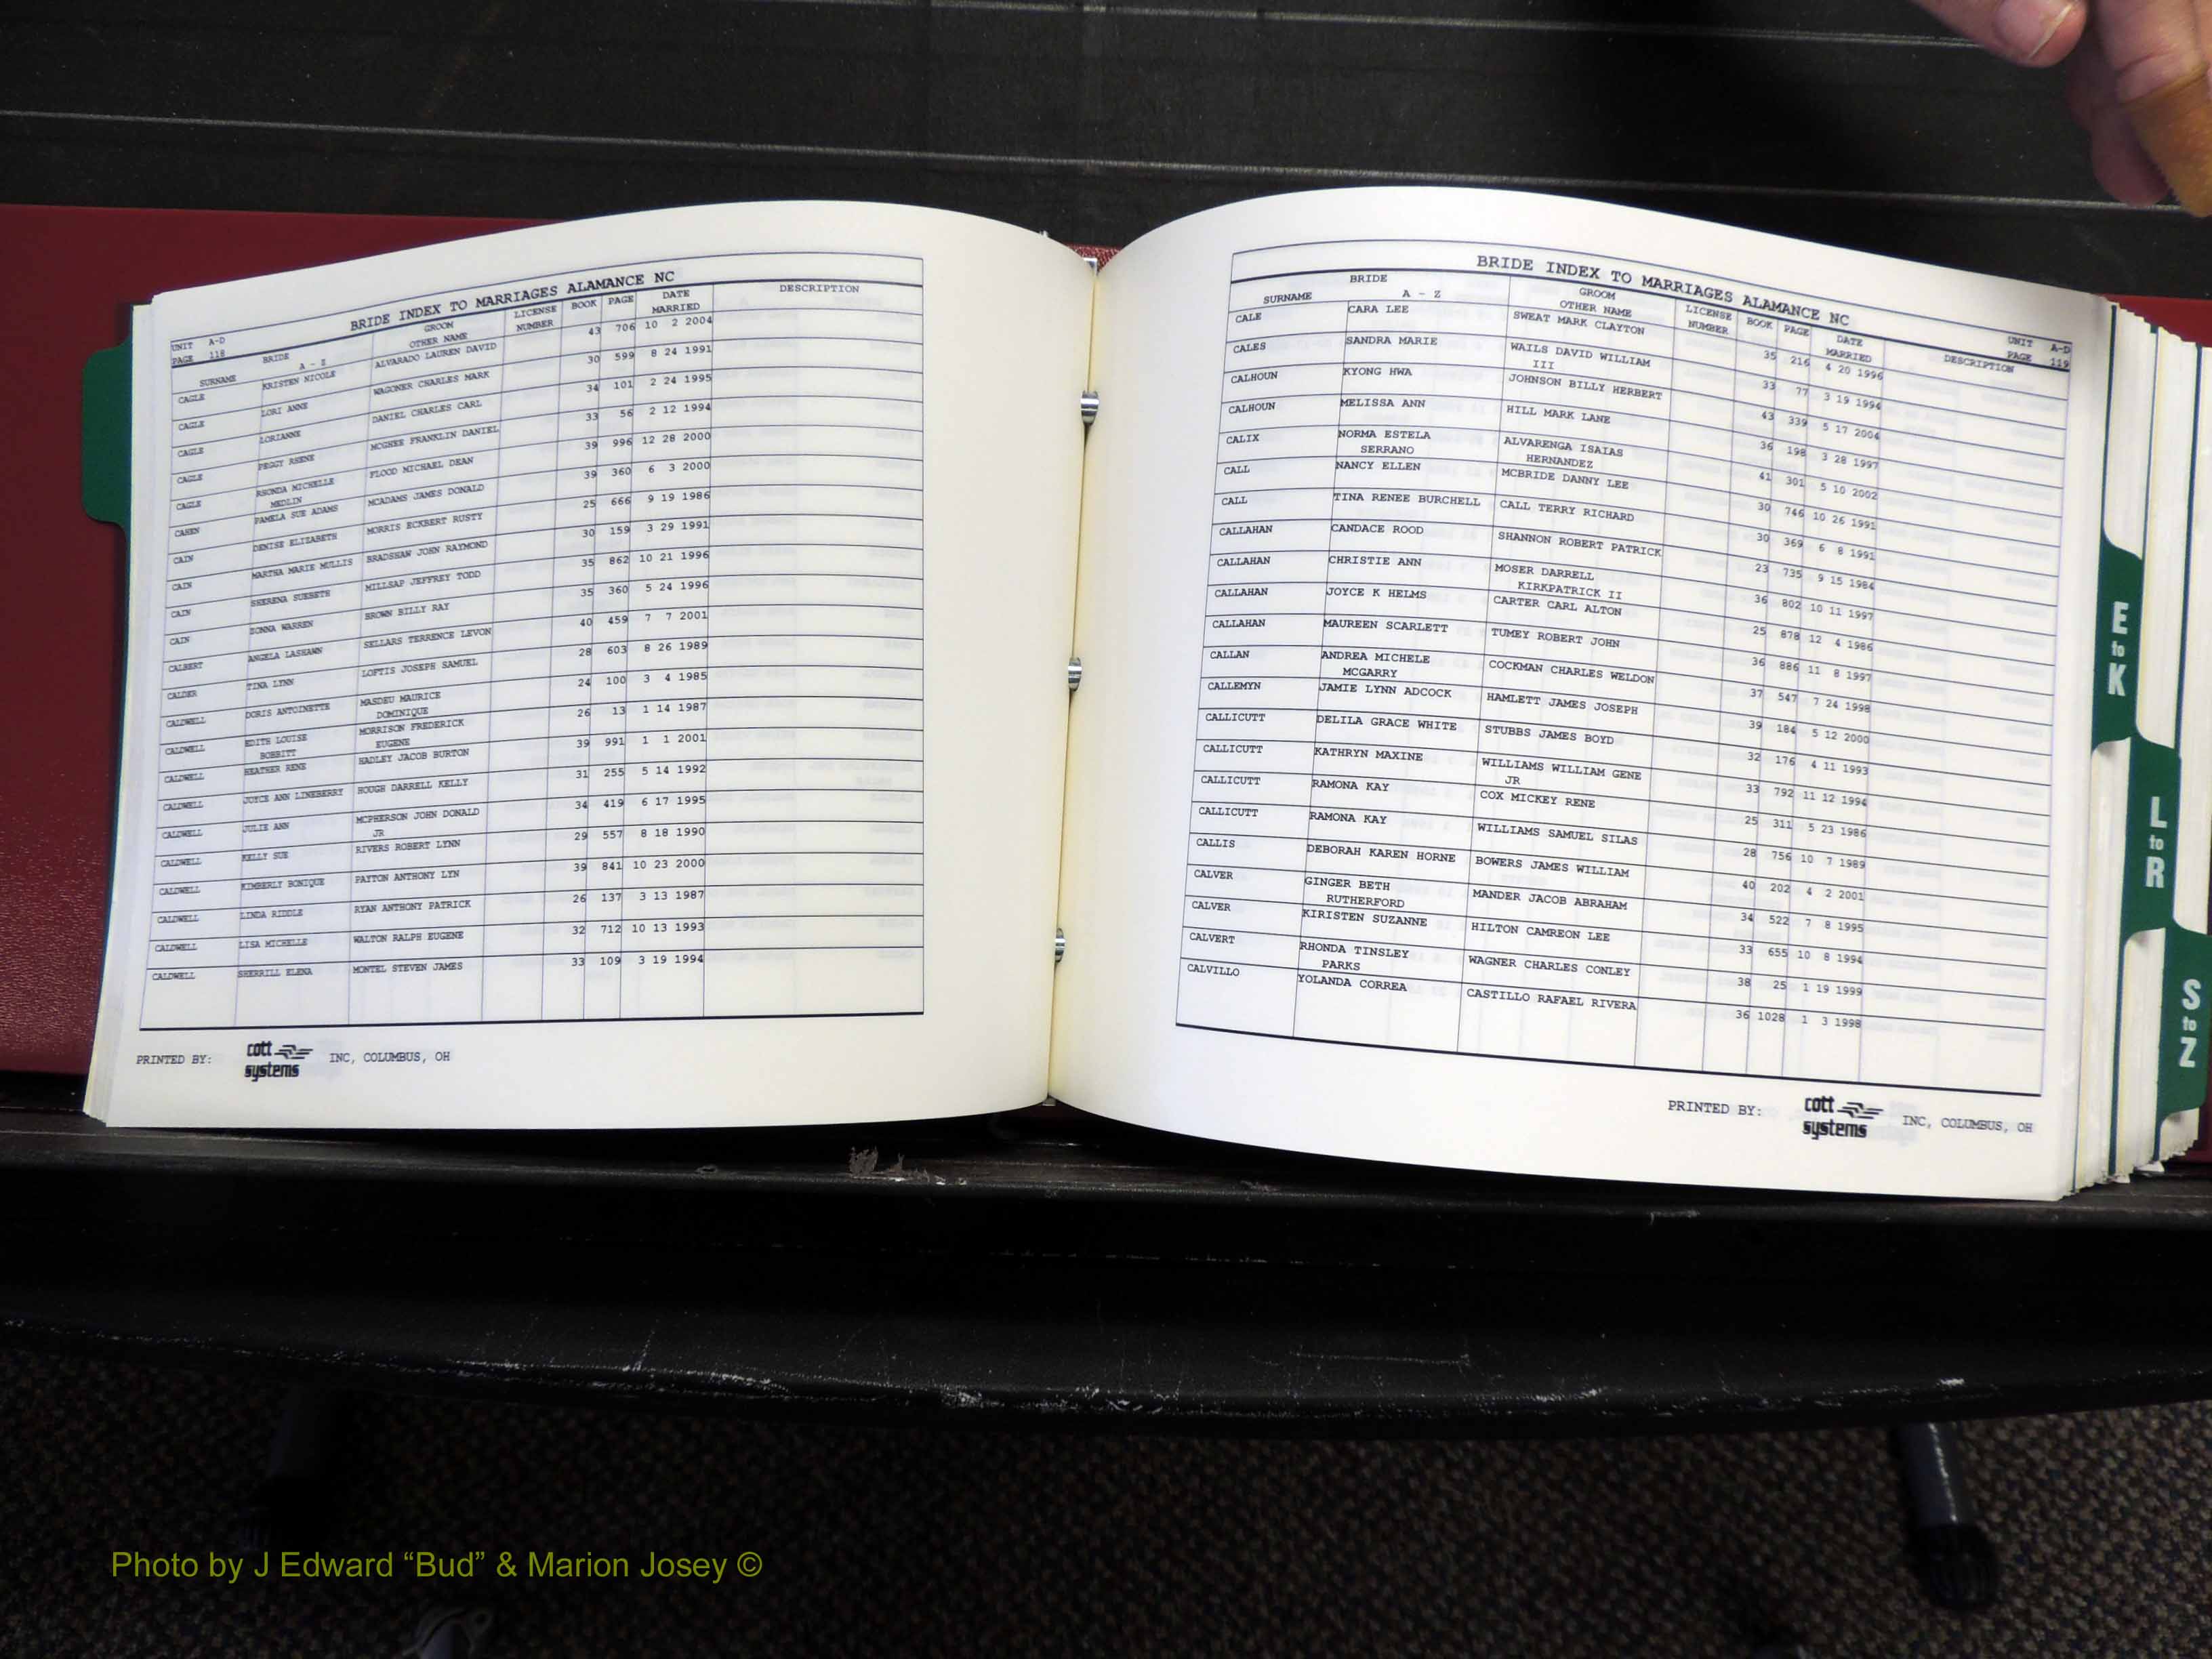 BRIDE INDEX TO MARRIAGES ALAMANCE NC
UNIT A-D
PAGE 118
BRIDE GROOM LICENSE BOOK PAGE DATE DESCRIPTION
SURNAME A - Z OTHER NAME NUMBER MARRIED
CAGLE KRISTEN NICOLE ALVARADO LAUREN DAVID 43 706 10 2 2004
CAGLE LORI ANNE WAGONER CHARLES MARK 30 599 8 24 1991
CAGLE LORIANNE DANIEL CHARLES CARL 34 101 2 24 1995
CAGLE PEGGY RHENE MCGHEE FRANKLIN DANIEL 33 56 2 12 1994
CAGLE RHONDA MICHELLE FLOOD MICHAEL DEAN 39 996 12 28 2000
MEDLIN
CAHEN PAMELA SUE ADAMS MCADAMS JAMES DONALD 39 360 6 3 2000
CAIN DENISE ELIZABETH MORRIS ECKBERT RUSTY 25 666 9 19 1986
CAIN MARTHA MARIE MULLIS BRADSHAW JOHN RAYMOND 30 159 3 29 1991
CAIN SHERENA SUEBETH MILLSAP JEFFREY TODD 35 862 10 21 1996
CAIN ZONNA WARREN BROWN BILLY RAY 35 360 5 24 1996
CALBERT ANGELA LASHAWN SELLARS TERRENCE LEVON 40 459 7 7 2001
CALDER TINA LYNN LOFTIS JOSEPH SAMUEL 28 603 8 26 1989
CALDWELL DORIS ANTOINETTE MASDEU MAURICE 24 100 3 4 1985
DOMINIQUE
CALDWELL EDITH LOUISE MORRISON FREDERICK 26 13 1 14 1987
BOBBITT EUGENE
CALDWELL HEATHER RENE HADLEY JACOB BURTON 39 991 1 1 2001
CALDWELL JOYCE ANN LINEBERRY HOUGH DARRELL KELLY 31 255 5 14 1992
CALDWELL JULIE ANN MCPHERSON JOHN DONALD 34 419 6 17 1995
JR
CALDWELL KELLY SUE RIVERS ROBERT LYNN 29 557 8 18 1990
CALDWELL KIMBERLY BONIQUE PAYTON ANTHONY LYN 39 841 10 23 2000
CALDWELL LINDA RIDDLE RYAN ANTHONY PATRICK 26 137 3 13 1987
CALDWELL LISA MICHELLE WALTON RALPH EUGENE 32 712 10 13 1993
CALDWELL SHERRILL ELENA MONTEL STEVEN JAMES 33 109 3 19 1994
PRINTED BY: cott systems INC, COLUMBUS, OH
BRIDE INDEX TO MARRIAGES ALAMANCE NC
UNIT A-D
PAGE 119
BRIDE GROOM LICENSE BOOK PAGE DATE DESCRIPTION
SURNAME A - Z OTHER NAME NUMBER MARRIED
CALE CARA LEE SWEAT MARK CLAYTON 35 216 4 20 1996
CALES SANDRA MARIE WAILS DAVID WILLIAM 33 77 3 19 1994
III
CALHOUN KYONG HWA JOHNSON BILLY HERBERT 43 339 5 17 2004
CALHOUN MELISSA ANN HILL MARK LANE 36 198 3 28 1997
CALIX NORMA ESTELA ALVARENGA ISAIAS 41 301 5 10 2002
SERRANO HERNANDEZ
CALL NANCY ELLEN MCBRIDE DANNY LEE 30 746 10 26 1991
CALL TINA RENEE BURCHELL CALL TERRY RICHARD 30 369 6 8 1991
CALLAHAN CANDACE ROOD SHANNON ROBERT PATRICK 23 735 9 15 1984
CALLAHAN CHRISTIE ANN MOSER DARRELL 36 802 10 11 1997
KIRKPATRICK II
CALLAHAN JOYCE K HELMS CARTER CARL ALTON 25 878 12 4 1986
CALLAHAN MAUREEN SCARLETT TUMEY ROBERT JOHN 36 886 11 8 1997
CALLAN ANDREA MICHELE COCKMAN CHARLES WELDON 37 547 7 24 1998
MCGARRY
CALLEMYN JAMIE LYNN ADCOCK HAMLETT JAMES JOSEPH 39 184 5 12 2000
CALLICUTT DELILA GRACE WHITE STUBBS JAMES BOYD 32 176 4 11 1993
CALLICUTT KATHRYN MAXINE WILLIAMS WILLIAM GENE 33 792 11 12 1994
JR
CALLICUTT RAMONA KAY COX MICKEY RENE 25 311 5 23 1986
CALLICUTT RAMONA KAY WILLIAMS SAMUEL SILAS 28 756 10 7 1989
CALLIS DEBORAH KAREN HORNE BOWERS JAMES WILLIAM 40 202 4 2 2001
CALVER GINGER BETH MANDER JACOB ABRAHAM 34 522 7 8 1995
RUTHERFORD
CALVER KIRISTEN SUZANNE HILTON CAMREON LEE 33 655 10 8 1994
CALVERT RHONDA TINSLEY WAGNER CHARLES CONLEY 38 25 1 19 1999
PARKS
CALVILLO YOLANDA CORREA CASTILLO RAFAEL RIVERA 36 1028 1 3 1998
PRINTED BY: cott systems INC, COLUMBUS, OH
E to K
L to R
S to Z
Photo by J Edward “Bud” & Marion Josey ©